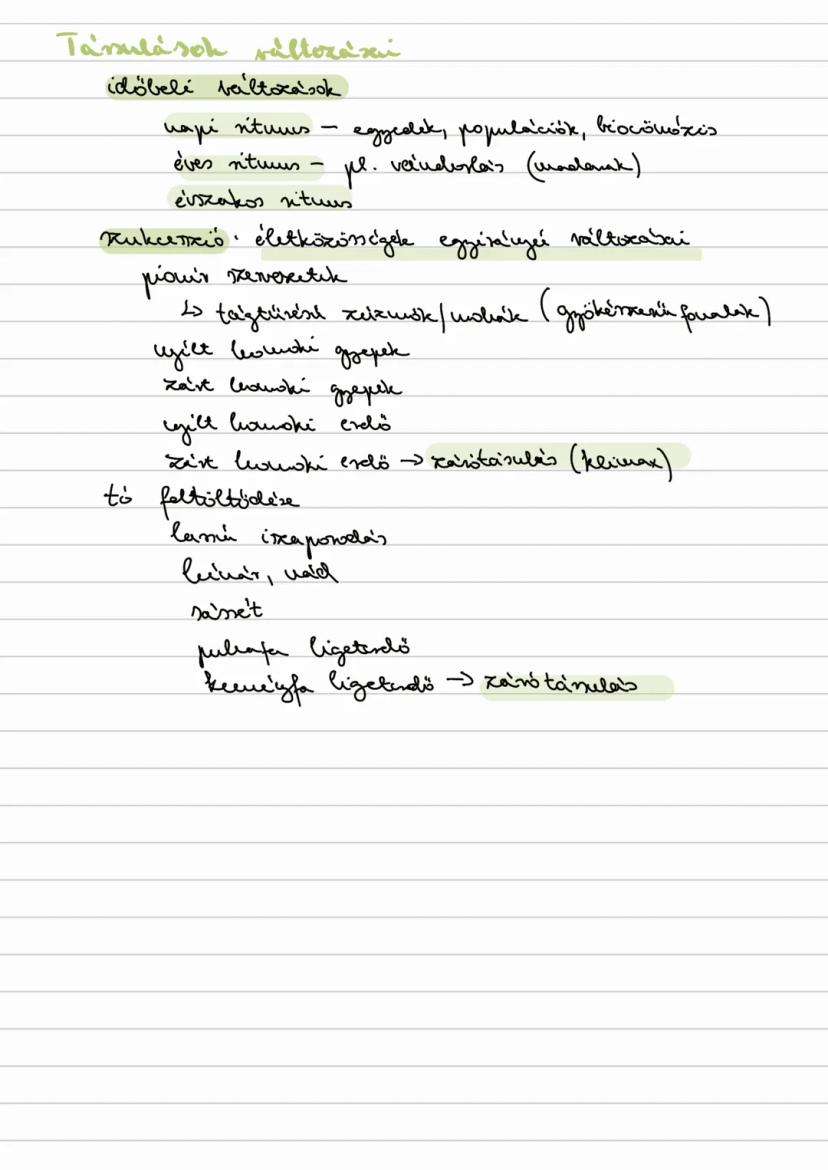 Társulások változásai
időbeli változások
napi ritmus – egyedek, populációk, biocönózis
éves ritmus – pl. vándorlás (madarak)
évszakos ritmus
szukcesszió: életközösségek egyirányú változásai
pionír szervezetek
↳ tágtűrésű zuzmók/mohák (gyökérszerű fonalak)
nyílt homoki gyepek
zárt homoki gyepek
nyílt homoki erdő
zárt homoki erdő → zárótársulás (klimax)
tó feltöltődése
lassú iszaposodás
hínár, nád
sásrét
puhafa ligeterdő
keményfa ligeterdő → zárótársulás